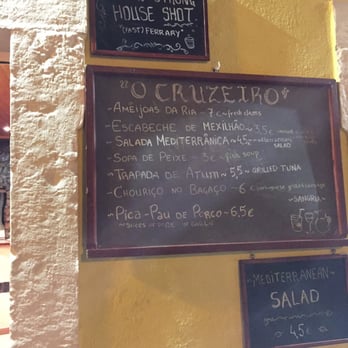 STRONG
HOUSE SHOT
(FAST) FERRARY"
"O CRUZEIRO"
- AMÊIJOAS DA RIA - 7€ ~ fresh clams
- ESCABECHE DE MEXILHÃO ~ 3,5€
- SALADA MEDITERRÂNICA ~ 4,5€ ~ mediterranean SALAD
- SOPA DE PEIXE - 3€ ~ fish soup
- TRAPADA DE ATUM ~ 5,5 ~ GRILLED TUNA
- CHOURIÇO NO BAGAÇO - 6€
- PICA-PAU DE PORCO - 6,5€
~ SLICES OF PORK
~ SANGRIA ~
~MEDITERRANEAN~
SALAD
4,5€